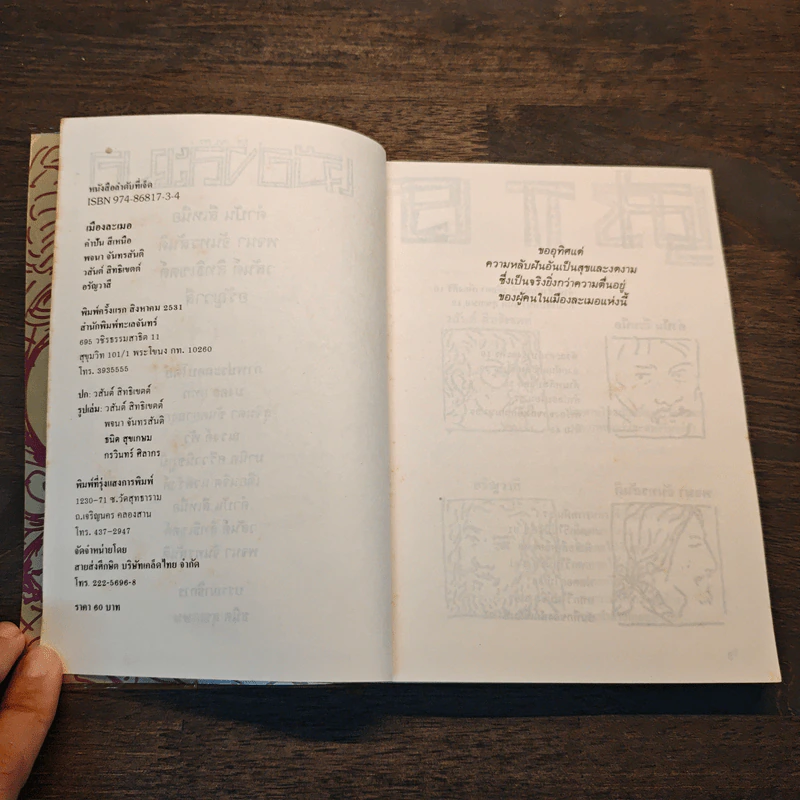 หนังสือลำดับที่เจ็ด
ISBN 974-86817-3-4
เมืองละเมอ
คำปัน สีเหนือ
พจนา จันทรสันติ
วสันต์ สิทธิเขตต์
อรัญวาสี
พิมพ์ครั้งแรก สิงหาคม 2531
สำนักพิมพ์ทะเลจันทร์
695 วชิรธรรมสาธิต 11
สุขุมวิท 101/1 พระโขนง กท. 10260
โทร. 3935555
ปก: วสันต์ สิทธิเขตต์
รูปเล่ม: วสันต์ สิทธิเขตต์
พจนา จันทรสันติ
ธนิต สุขเกษม
กรวินทร์ ศิลากร
พิมพ์ที่รุ่งแสงการพิมพ์
1230-71 ซ.วัดสุทธาราม
ถ.เจริญนคร คลองสาน
โทร. 437-2947
จัดจำหน่ายโดย
สายส่งศึกษิต บริษัทเคล็ดไทย จำกัด
โทร. 222-5696-8
ราคา 60 บาท
ขออุทิศแด่
ความหลับฝันอันเป็นสุขและงดงาม
ซึ่งเป็นจริงยิ่งกว่าความตื่นอยู่
ของผู้คนในเมืองละเมอแห่งนี้